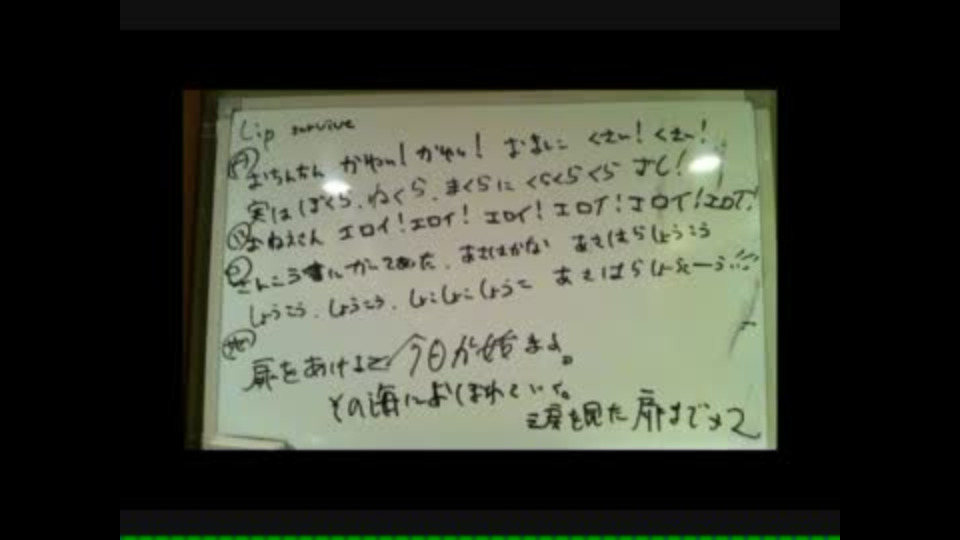 Lip survive
おちんちん かわいい! かわいい! おまんこ くさい! くさい!
実は ぼくら、ねくら、まくらに くらくらくら よし!
おねえさん エロイ! エロイ! エロイ! エロイ! エロイ! エロイ!
さんこう書に かいてあった、あさはかな あさはらしょうこう
しょうこう、しょうこう、しょこしょこしょうこ あさはらしょーこーう!!!
扉をあけると 今日が始まる。
その海におぼれていく。
を見た 扉まで×2